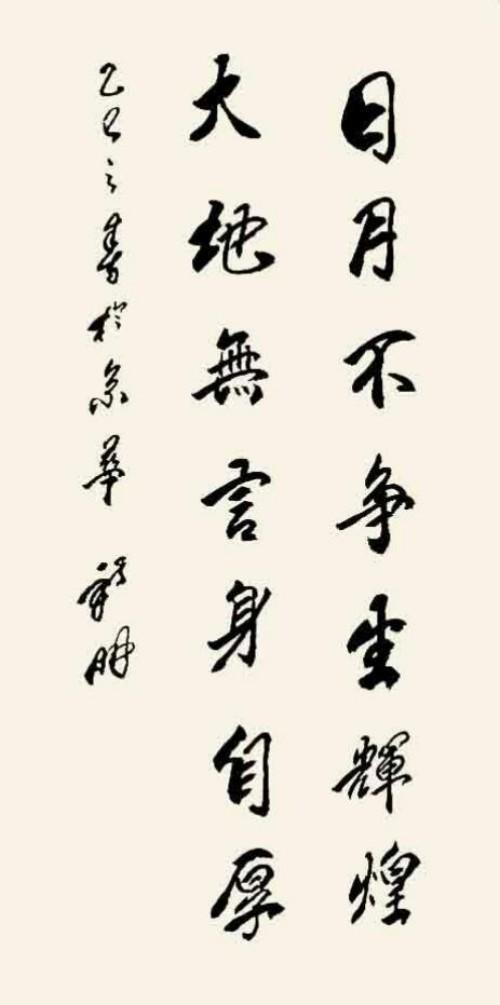 日月不争坐輝煌
大地無言身自厚
乙巳之春於京華